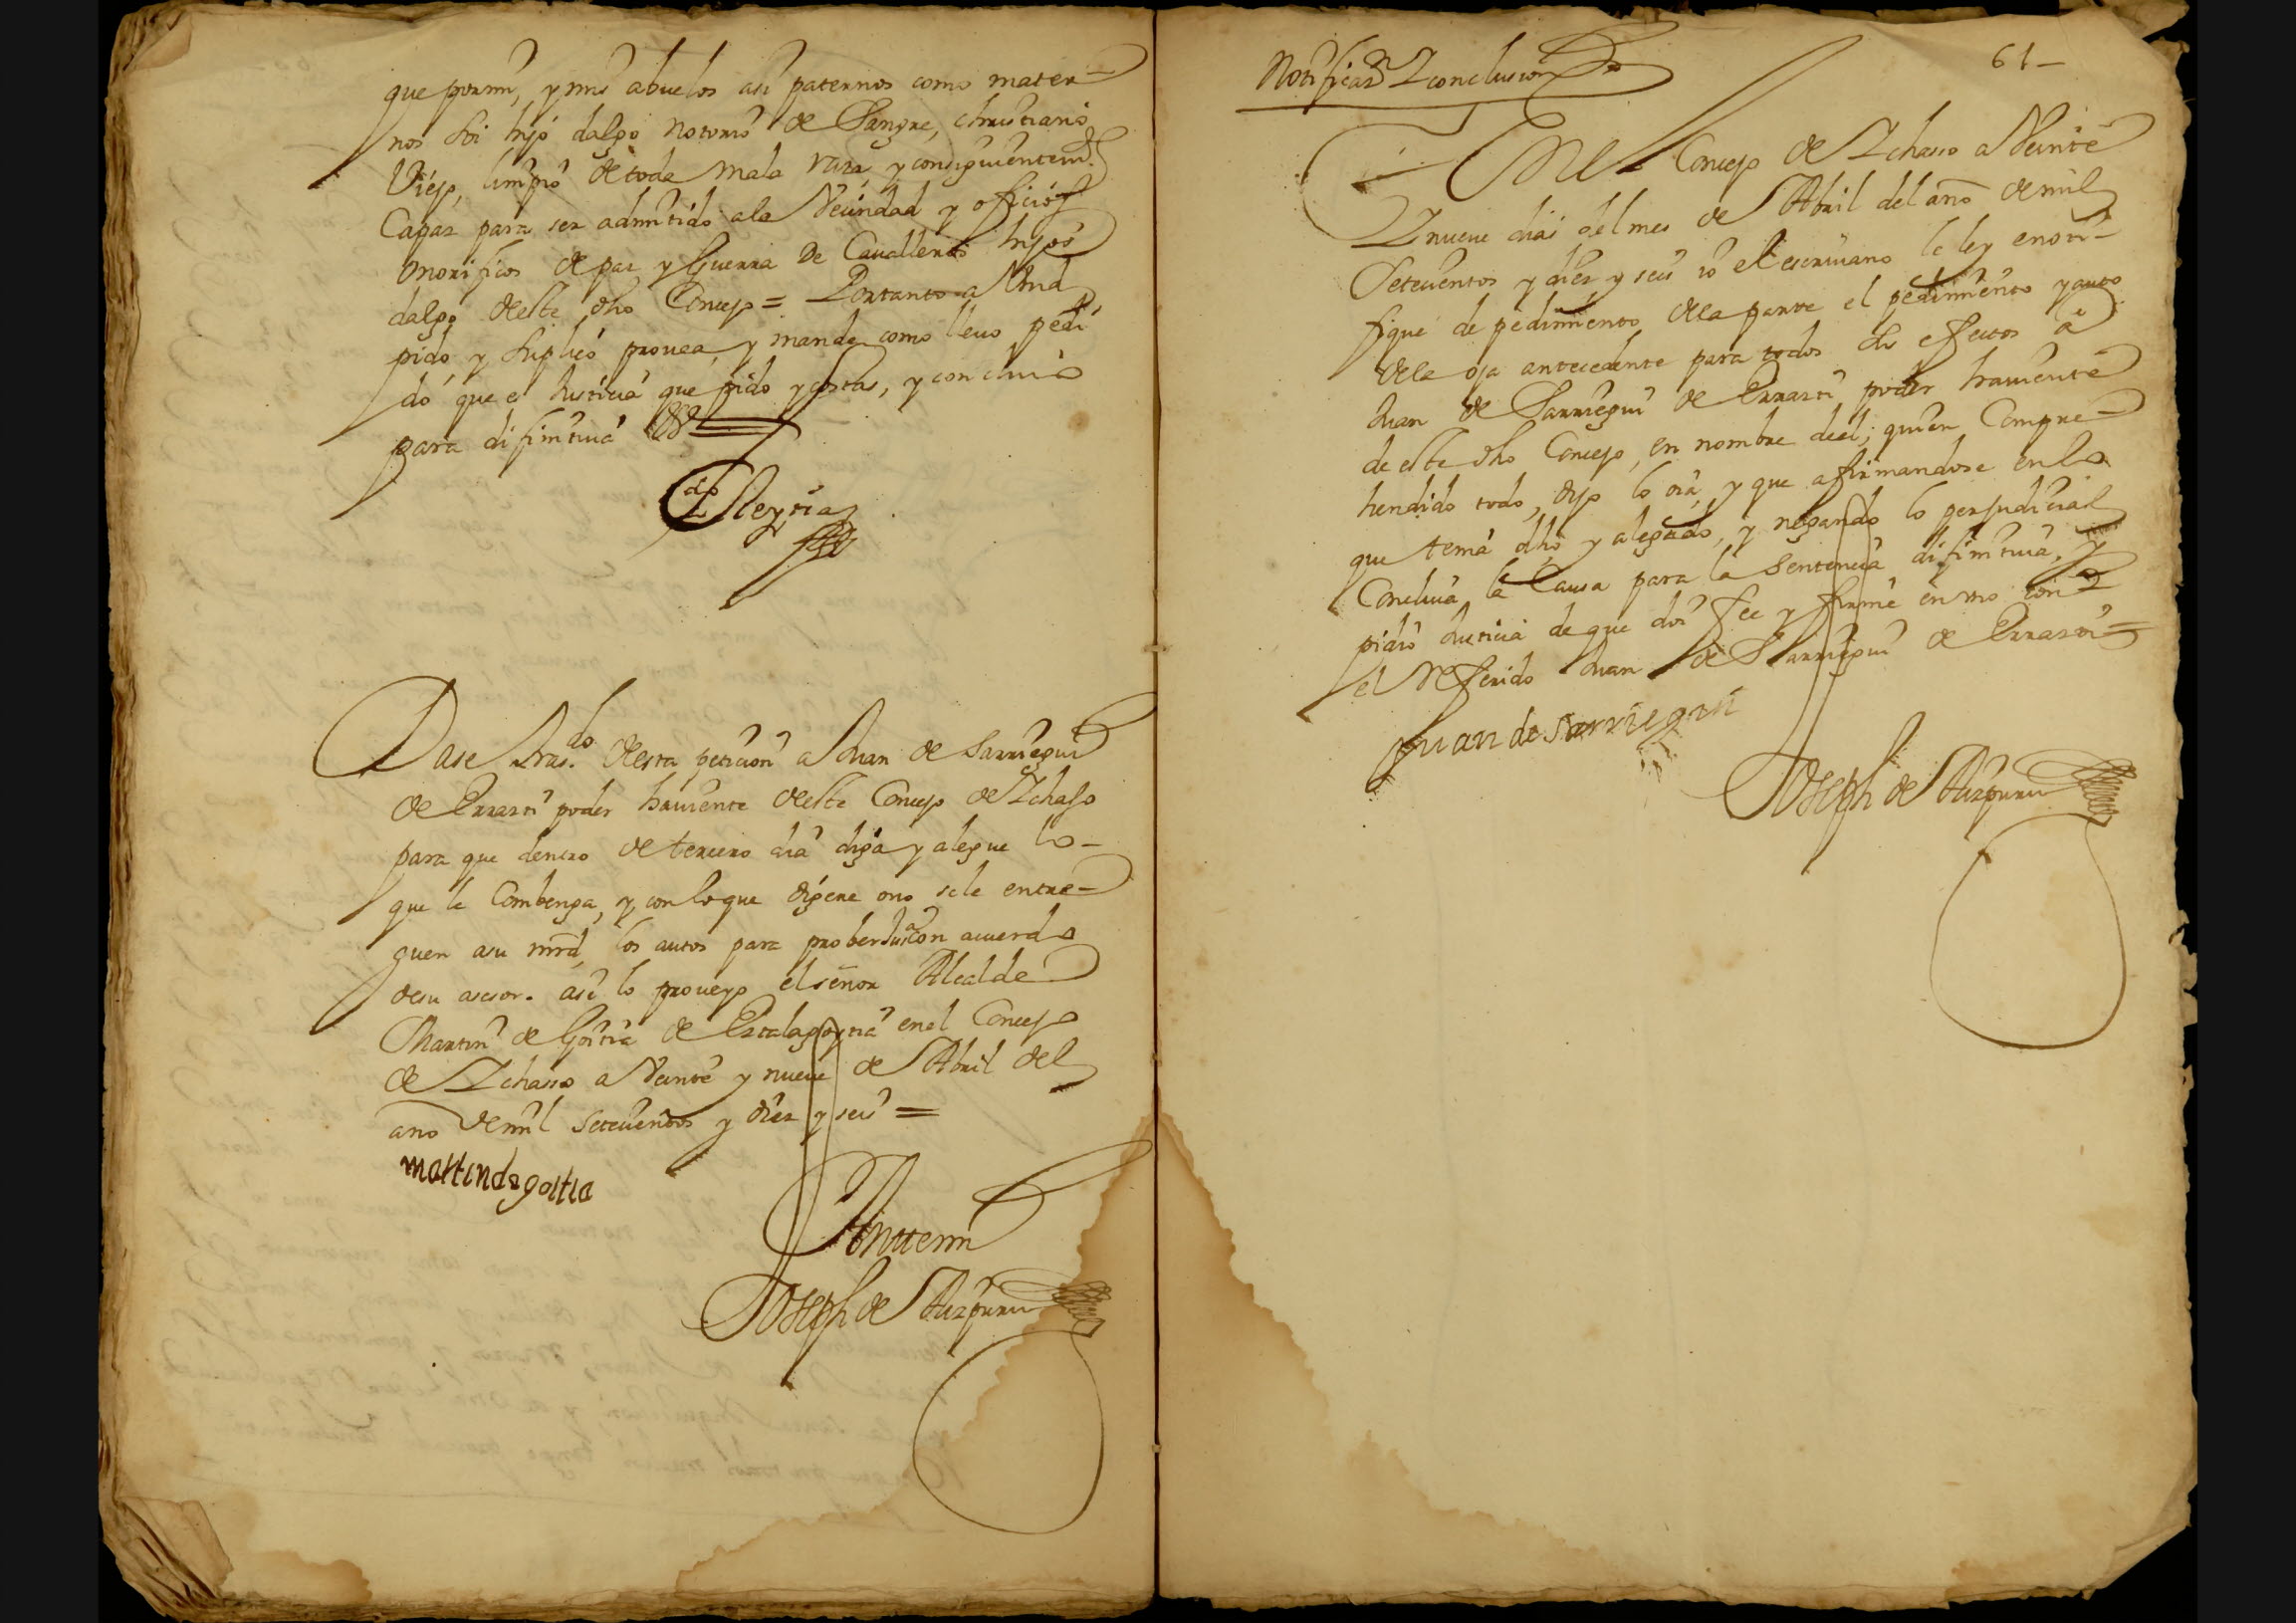 que por mi, y mis abuelos asi paternos como mater=
nos soi hijo dalgo notorio de Sangre, christiano
Viejo, limpio de toda mala raza y consiguientemte
Capaz para ser admitido ala Vecindad y oficios
onorificos de paz y Guerra De Cavalleros hijos
dalgo deste dho Concejo = Portanto a Vmd
pido y suplico provea, y manda como llevo pedi
do que es Justicia que pido y costas, y concluio
para difinitiva
Dase tras.do desta peticion a Juan de Sarriegui
de Errasti poder haviente deste Concejo de Ichaso
para que dentro de tercero dia diga y alegue lo-
que le Combenga, y con lo que digere ono se le entre=
guen asu mrd, los autos para prober con acuerdo
desu asesor. asi lo proveyo el señor Alcalde
Martin de Goitia de Estalagoytia en el Concejo
de Ichasso a Veinte y nueve de Abril del
ano de mil setecientos y diez y seis =
martin de goitia
Antte mi
Joseph de Aizpuru
61-
Notificazn I conclusion
En el Concejo de Ichasso a Veinte
I nueve dias del mes de Abril del año de mil
Setecientos y diez y seis io el escrivano le ley enoti=
fique de pedimiento dela parte el pedimiento y auto
dela oja antecedente para todos sus efectos a
Juan de Sarriegui de Errasti poder haviente
de este dho Concejo, en nombre deel; quien Compre=
hendido todo, dijo lo oia, y que afirmandose en lo
que tenia dho y alegado, y negando lo perjudicial
Concluia la Causa para la Sentencia difinitiva, y
pidio Justicia de que doi fee y firme en uno con
el Referido Juan de Sarriegui de Errasti =
Juan de Sarriegui
Joseph de Aizpuru